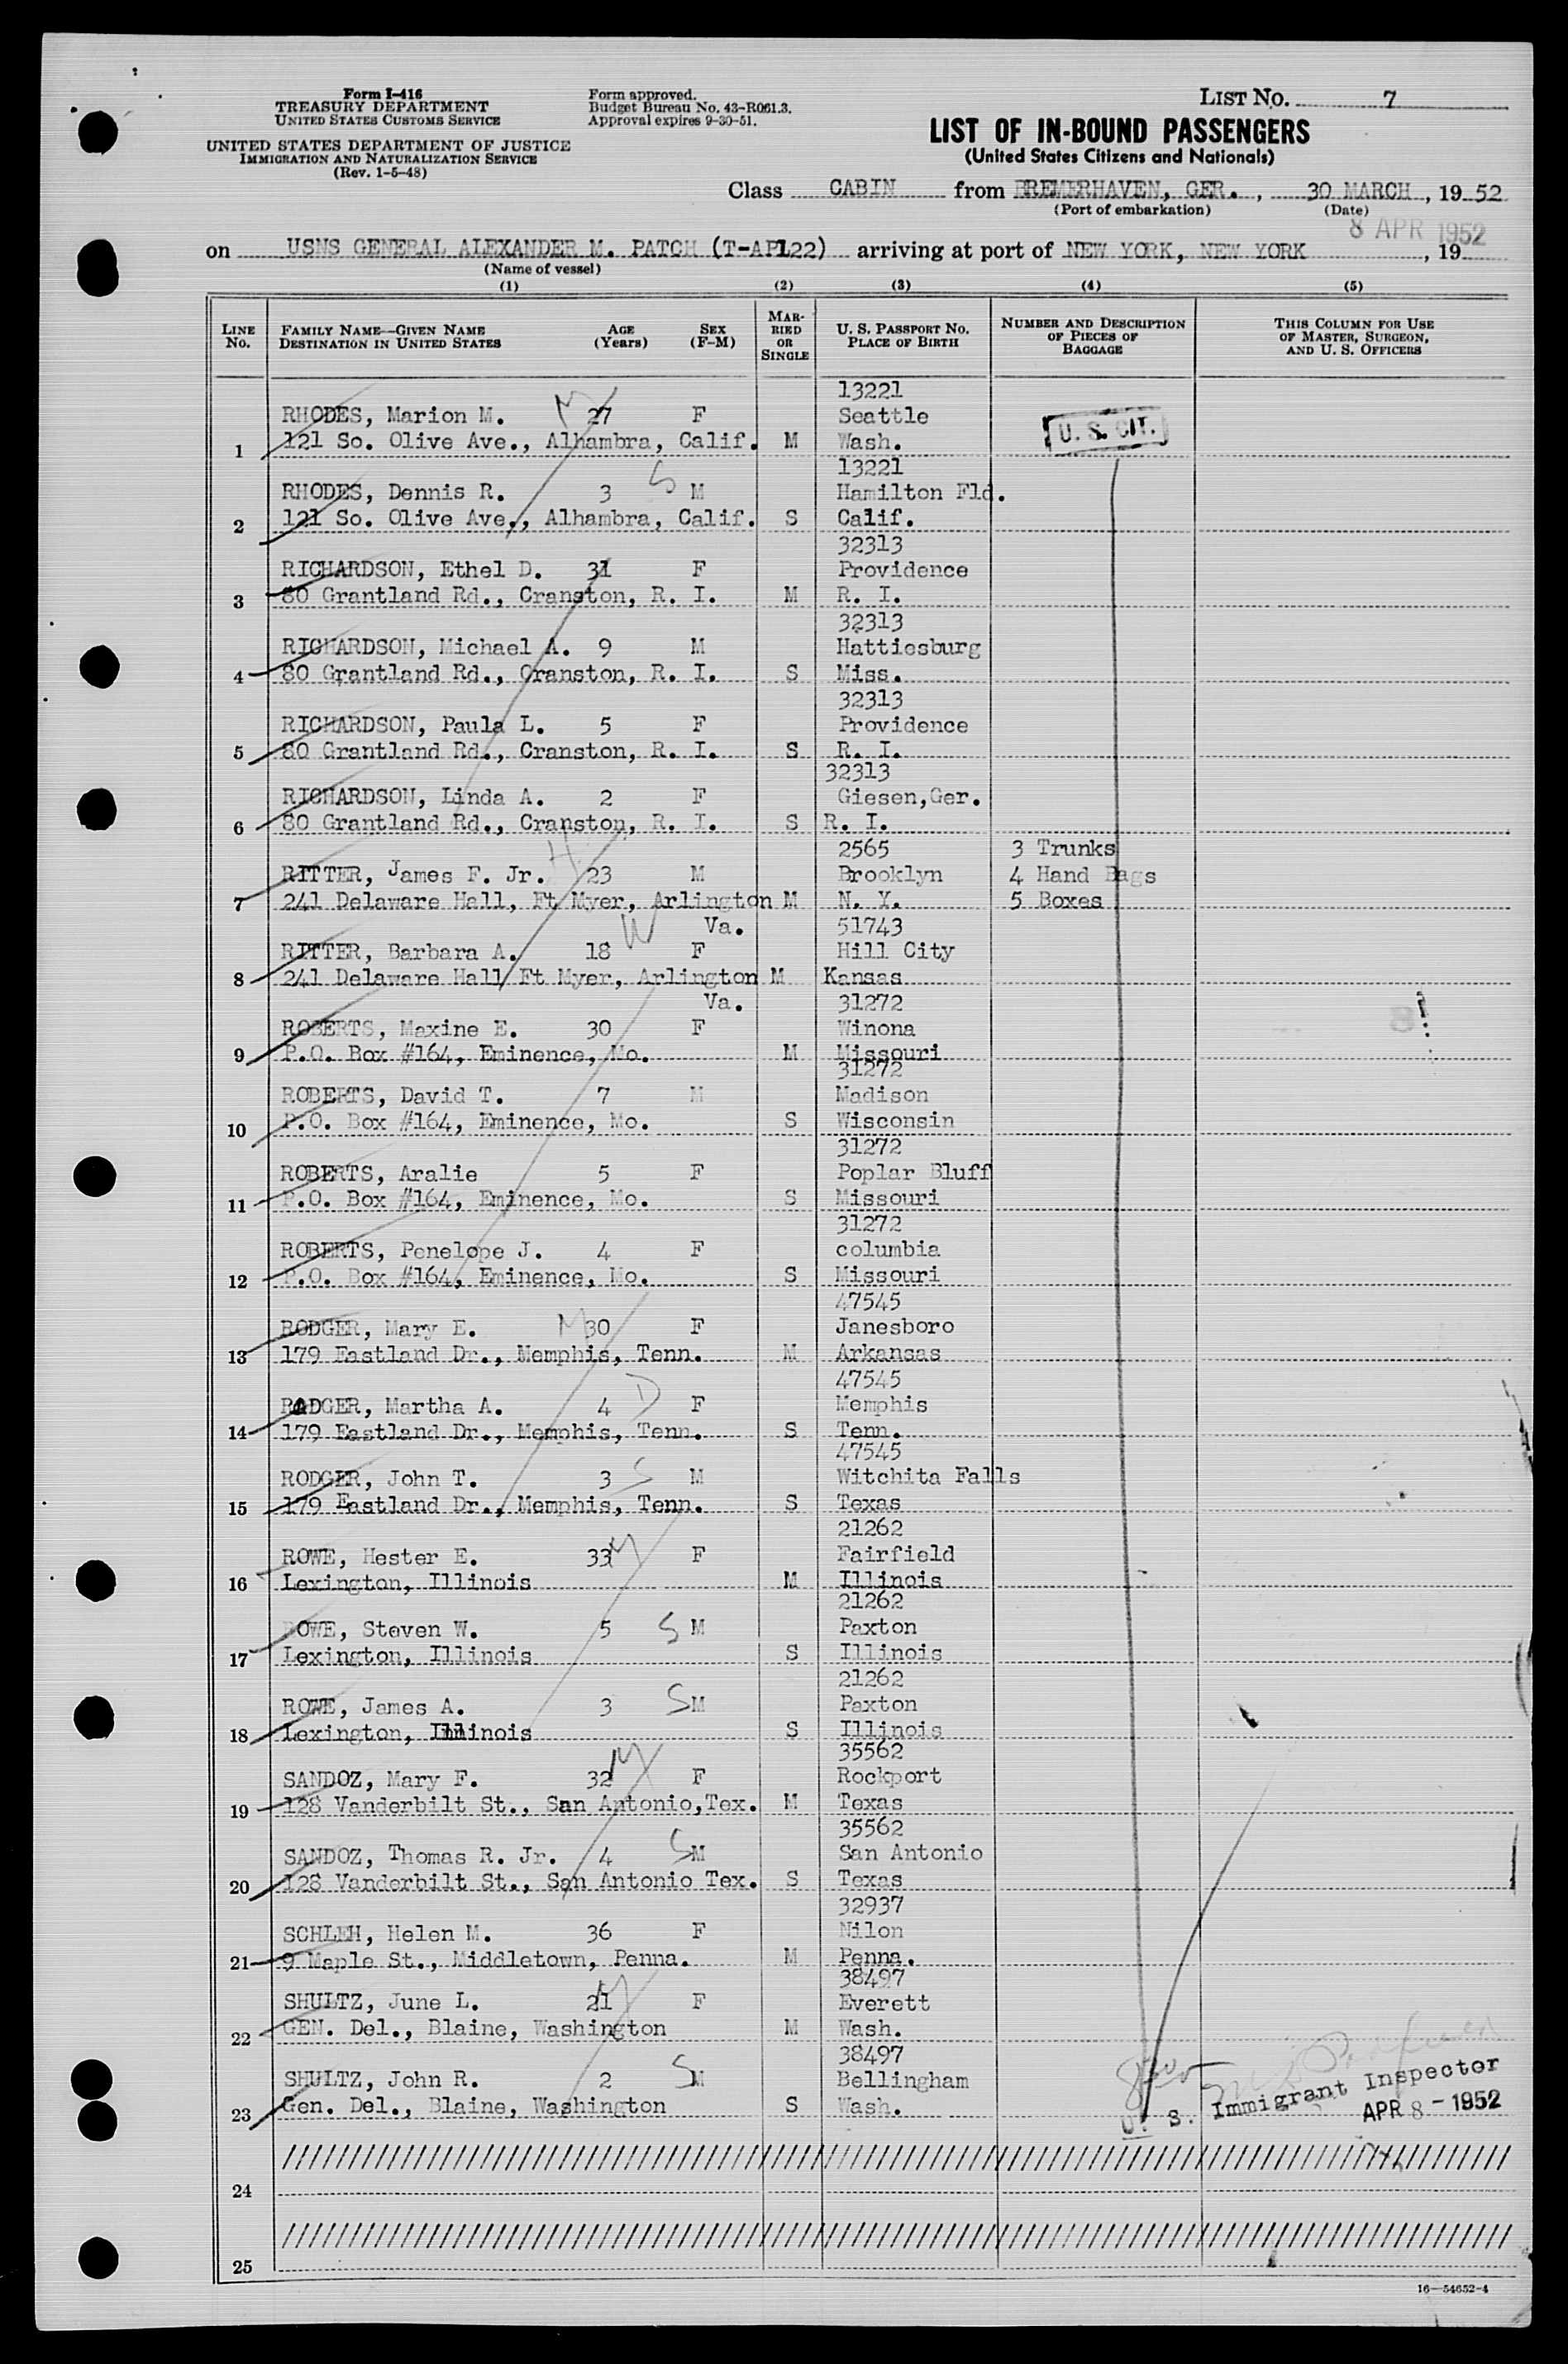 Form I-416
TREASURY DEPARTMENT
UNITED STATES CUSTOMS SERVICE
UNITED STATES DEPARTMENT OF JUSTICE
IMMIGRATION AND NATURALIZATION SERVICE
(Rev. 1-5-48)
Form approved.
Budget Bureau No. 43-R061.3.
Approval expires 9-30-51.
LIST NO. 7
LIST OF IN-BOUND PASSENGERS
(United States Citizens and Nationals)
Class CABIN from BREMERHAVEN, GER., 30 MARCH, 1952
(Port of embarkation) (Date)
8 APR 1952
on USNS GENERAL ALEXANDER M. PATCH (T-AP122) arriving at port of NEW YORK, NEW YORK, 19
(Name of vessel)
(1) (2) (3) (4) (5)
LINE NO. FAMILY NAME—GIVEN NAME DESTINATION IN UNITED STATES AGE (Years) SEX (F-M) MARRIED OR SINGLE U. S. PASSPORT NO. PLACE OF BIRTH NUMBER AND DESCRIPTION OF PIECES OF BAGGAGE THIS COLUMN FOR USE OF MASTER, SURGEON, AND U. S. OFFICERS
13221
RHODES, Marion M. M 27 F Seattle
1 121 So. Olive Ave., Alhambra, Calif. M Wash. U. S. CIT.
13221
RHODES, Dennis R. 3 S M Hamilton Fld.
2 121 So. Olive Ave., Alhambra, Calif. S Calif.
32313
RICHARDSON, Ethel D. 31 F Providence
3 80 Grantland Rd., Cranston, R. I. M R. I.
32313
RICHARDSON, Michael A. 9 M Hattiesburg
4 80 Grantland Rd., Cranston, R. I. S Miss.
32313
RICHARDSON, Paula L. 5 F Providence
5 80 Grantland Rd., Cranston, R. I. S R. I.
32313
RICHARDSON, Linda A. 2 F Giesen,Ger.
6 80 Grantland Rd., Cranston, R. I. S R. I.
2565 3 Trunks
RITTER, James F. Jr. H 23 M Brooklyn 4 Hand Bags
7 241 Delaware Hall, Ft Myer, Arlington M N. Y. 5 Boxes
Va. 51743
RITTER, Barbara A. 18 W F Hill City
8 241 Delaware Hall Ft Myer, Arlington M Kansas
Va. 31272
ROBERTS, Maxine E. 30 F Winona
9 P.O. Box #164, Eminence, Mo. M Missouri
31272
ROBERTS, David T. 7 M Madison
10 P.O. Box #164, Eminence, Mo. S Wisconsin
31272
ROBERTS, Aralie 5 F Poplar Bluff
11 P.O. Box #164, Eminence, Mo. S Missouri
31272
ROBERTS, Penelope J. 4 F columbia
12 P.O. Box #164, Eminence, Mo. S Missouri
47545
RODGER, Mary E. M 30 F Janesboro
13 179 Eastland Dr., Memphis, Tenn. M Arkansas
47545
RODGER, Martha A. 4 D F Memphis
14 179 Eastland Dr., Memphis, Tenn. S Tenn.
47545
RODGER, John T. 3 S M Witchita Falls
15 179 Eastland Dr., Memphis, Tenn. S Texas
21262
ROWE, Hester E. 33 M F Fairfield
16 Lexington, Illinois M Illinois
21262
ROWE, Steven W. 5 S M Paxton
17 Lexington, Illinois S Illinois
21262
ROWE, James A. 3 S M Paxton
18 Lexington, Illinois S Illinois
35562
SANDOZ, Mary F. 32 M F Rockport
19 128 Vanderbilt St., San Antonio,Tex. M Texas
35562
SANDOZ, Thomas R. Jr. 4 S M San Antonio
20 128 Vanderbilt St., San Antonio Tex. S Texas
32937
SCHLEH, Helen M. 36 F Nilon
21 9 Maple St., Middletown, Penna. M Penna.
38497
SHULTZ, June L. 21 M F Everett
22 GEN. Del., Blaine, Washington M Wash.
38497
SHULTZ, John R. 2 S M Bellingham
23 Gen. Del., Blaine, Washington S Wash.
U. S. Immigrant Inspector
APR 8 - 1952
24
25
16—54652-4